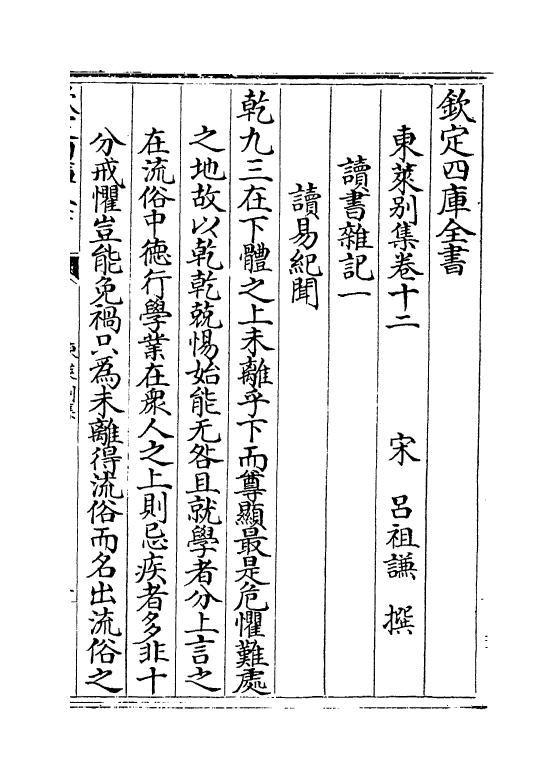 欽定四庫全書
東萊别集卷十二　宋　吕祖謙　撰
讀書雜記一
讀易紀聞
乾九三在下體之上未離乎下而尊顯最是危懼難處
之地故以乾乾兢惕始能无咎且就學者分上言之
在流俗中徳行學業在衆人之上則忌疾者多非十
分戒懼豈能免禍只為未離得流俗而名出流俗之